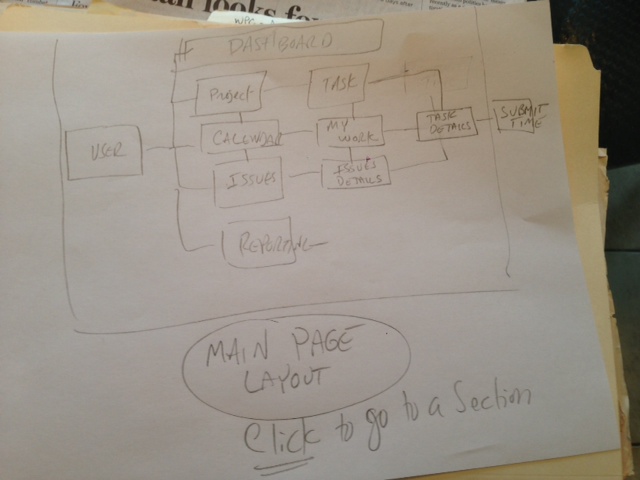 looks fo
DASHBOARD
Project
TASK
USER
CALENDAR
MY
WORK
TASK
DETAILS
SUBMIT
TIME
ISSUES
ISSUES
DETAILS
REPORTING
MAIN PAGE
LAYOUT
Click to go to a Section